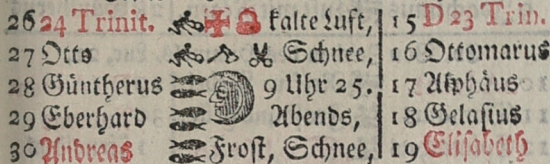 26 24 Trinit. kalte Luft, 15 D 23 Trin.
27 Otto Schnee, 16 Ottomarus
28 Güntherus 9 Uhr 25. 17 Alphäus
29 Eberhard Abends, 18 Gelasius
30 Andreas Frost, Schnee, 19 Elisabeth